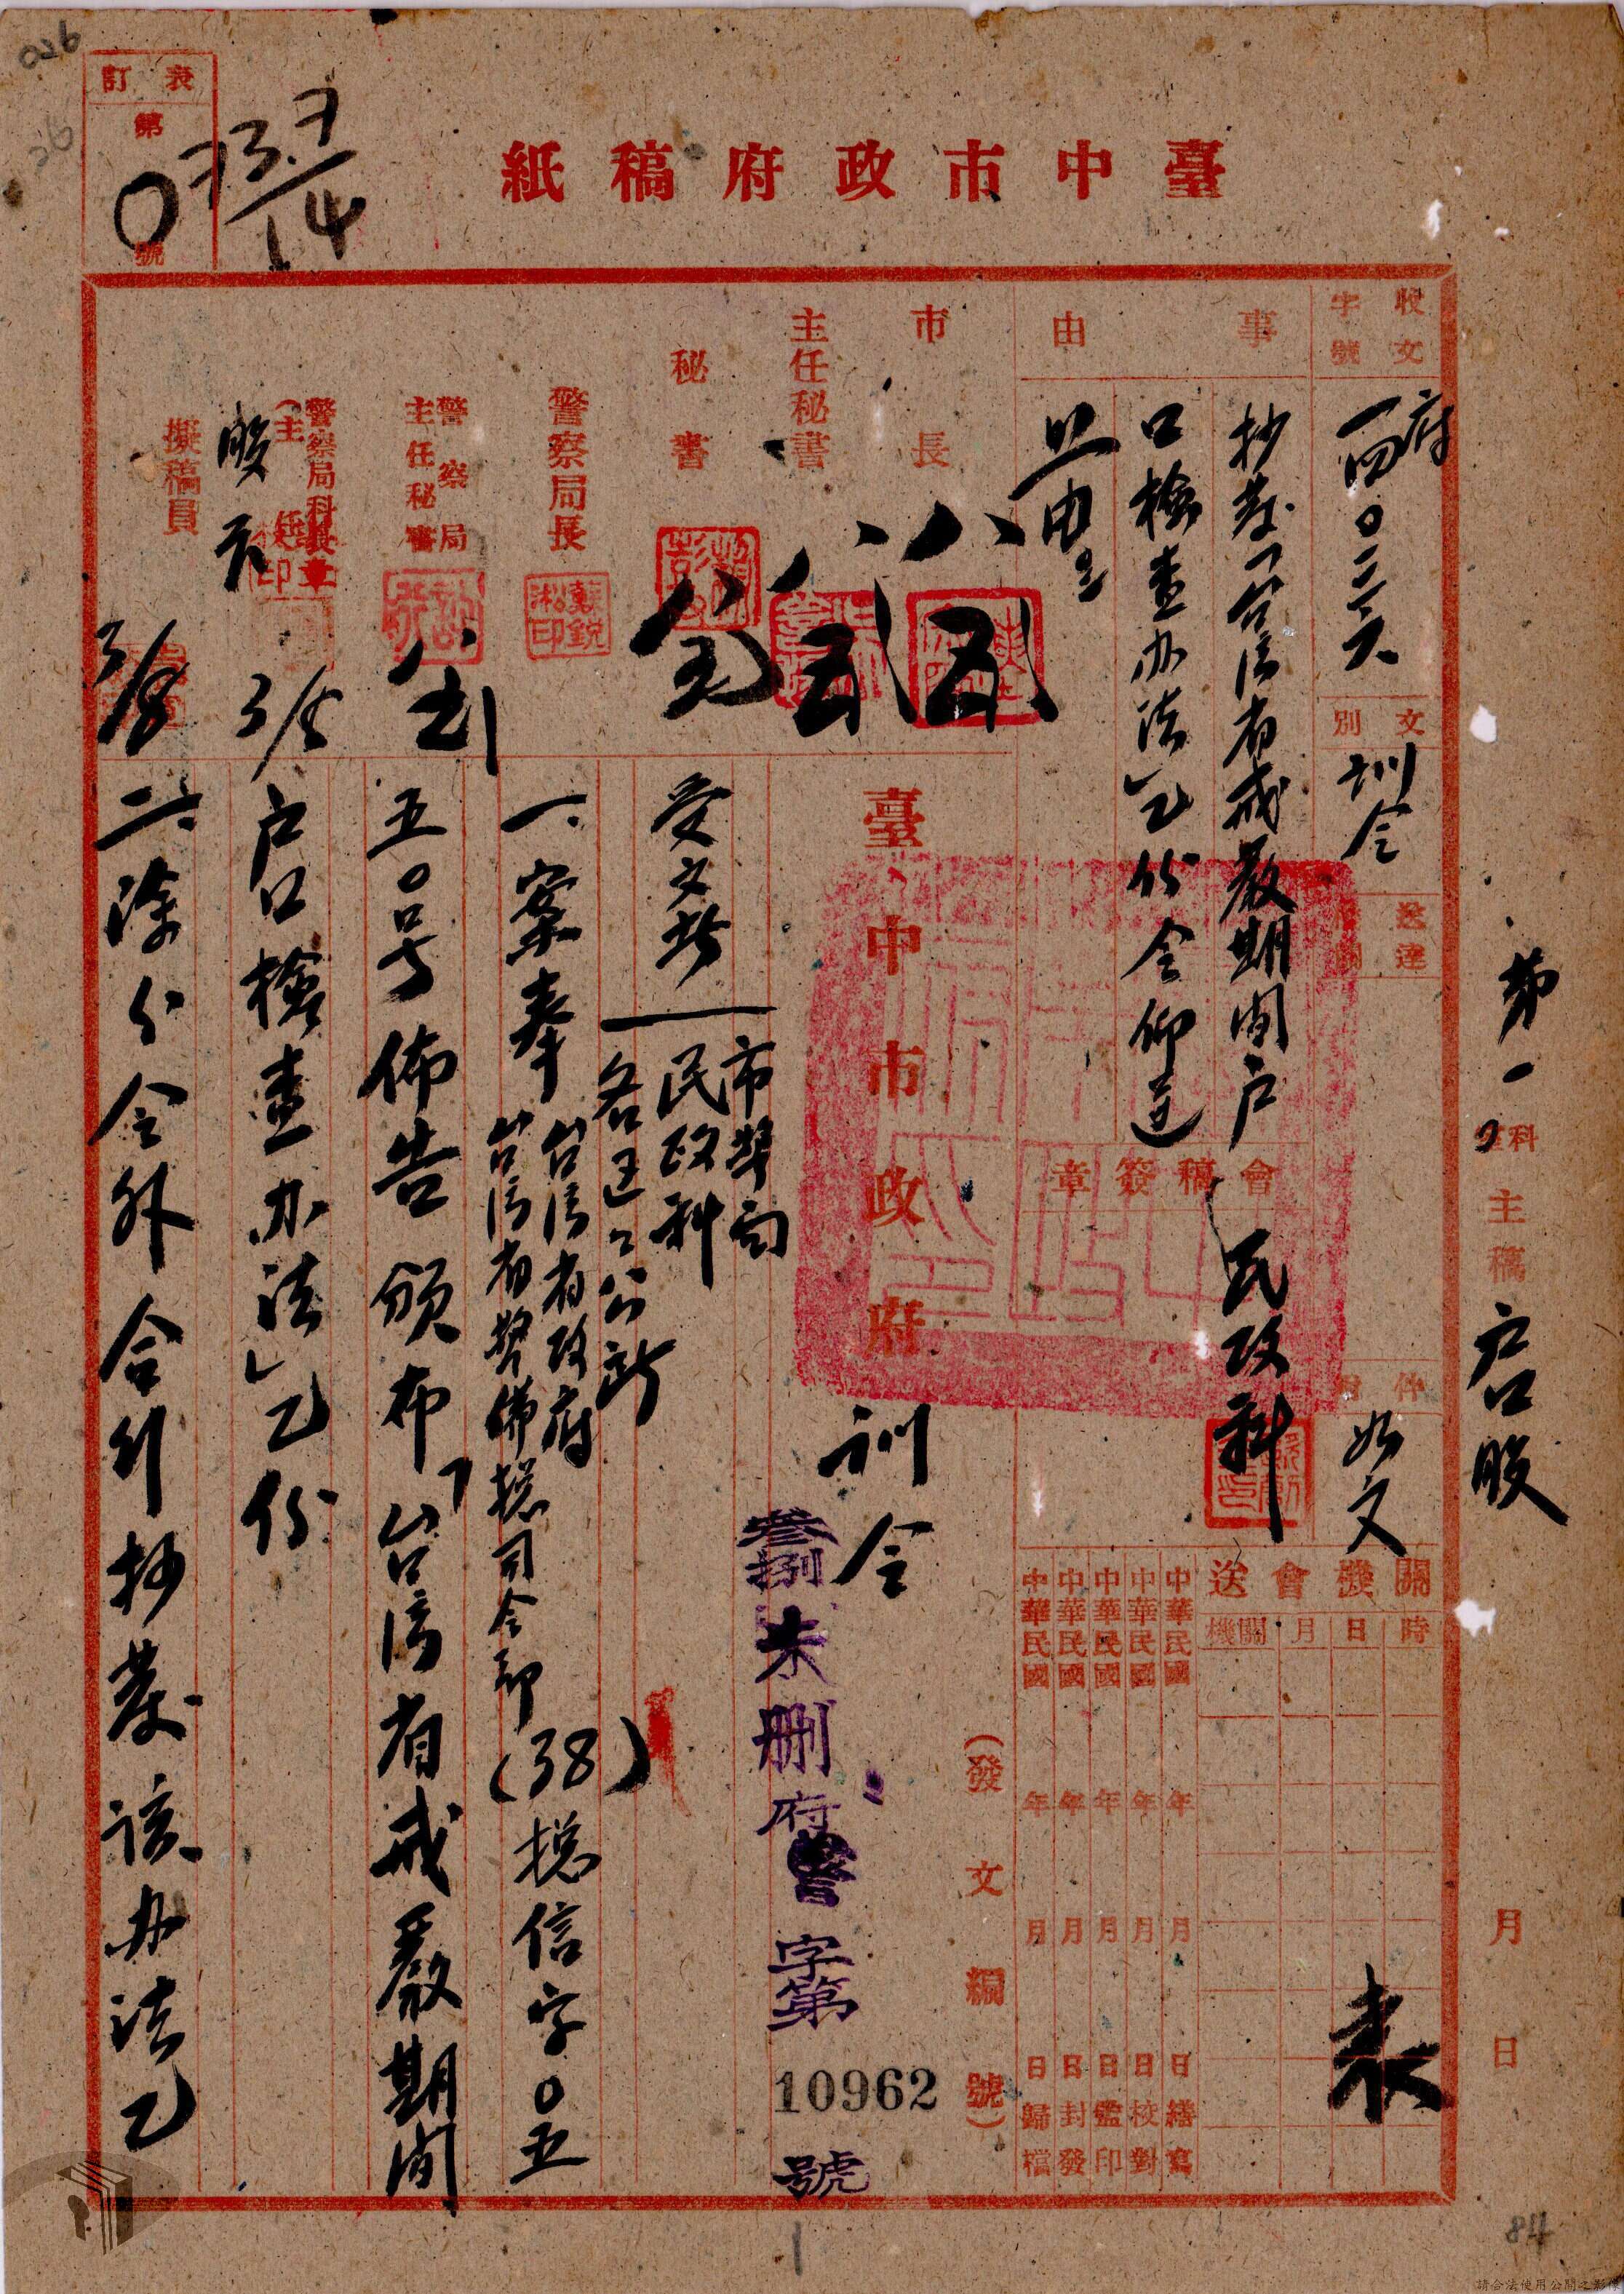 026
26
表訂
第
號
73.7
14
臺中市政府稿紙
第一科主稿
户口股
月 日
收文字號
府
一四〇二二六
文別
訓令
送達機關
附件
如文
事由
抄發「台湾省戒嚴期間户
口檢查办法」乙份令仰遵
照由
會稿簽章
民政科
關機會送
時 日 月 機關
中華民國 年 月 日繕寫
中華民國 年 月 日校對
中華民國 年 月 日監印
中華民國 年 月 日封發
中華民國 年 月 日歸檔
市長
主任秘書
秘書
警察局長
鄭銳淞印
警察局主任秘書
警察局科長
(主任
股
擬稿員
(發文編號)
臺中市政府
訓令
叁捌未刪府警字第10962號
受文者
市警局
民政科
各區区公所
一、案奉
台湾省政府
台湾省警備總司令部
(38)總信字〇五
五〇号佈告頒布「台湾省戒嚴期間
户口檢查办法」乙份
二、除分令外合行抄發該办法乙
1
84
請合法使用公開之影像